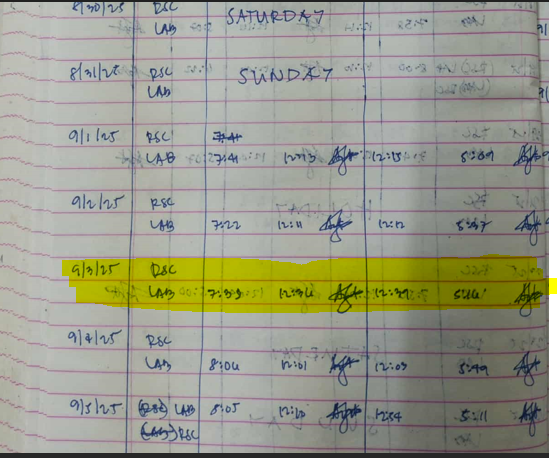 8/30/25 RSC SATURDAY
LAB
8/31/25 RSC SUNDAY
LAB
9/1/25 RSC 7:41
LAB 7:41 12:13 12:15
9/2/25 RSC
LAB 7:22 12:11 12:12 5:37
9/3/25 RSC
LAB 12:34
9/4/25 RSC
LAB 8:04 12:01 12:03 5:49
9/5/25 (RSC) LAB 8:05 12:54 5:11
(LAB) RSC